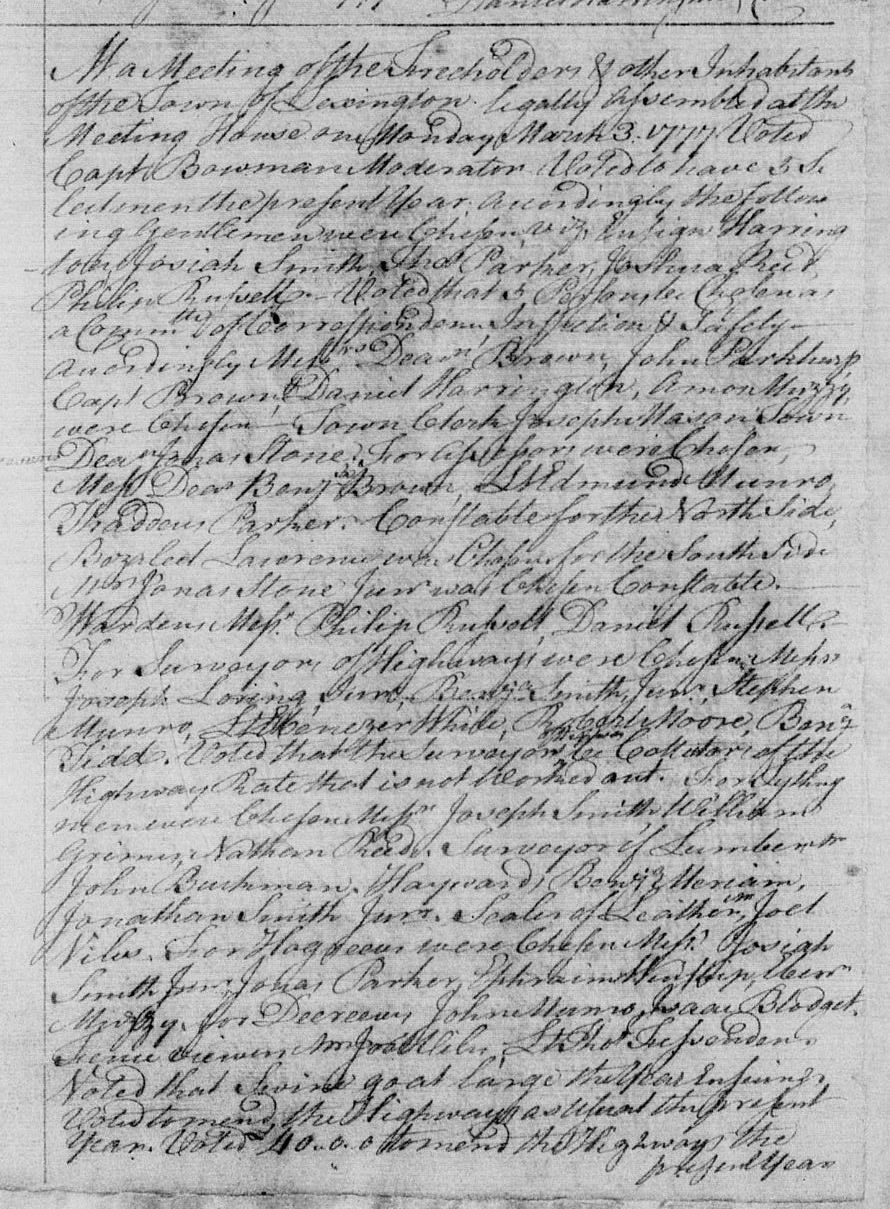 At a Meeting of the Freeholders & other Inhabitants
of the Town of Lexington legally assembled at the
Meeting House on Monday March 3. 1777 Voted
Capt. Bowman Moderator Voted to have 5 Se
lectmen the present Year. Accordingly the follow
ing Gentlemen were Chosen, viz, Ensign Harring
ton, Josiah Smith, Thos Parker, Joshua Reed,
Philip Russell Voted that 5 Persons be Chosen as
a Commtte of Correspondence Inspection & Safety
accordingly Messrs Deacn Brown, John Parkhurst,
Capt Brown, Daniel Harrington, Amos Muzzy,
were Chosen Town Clerk Joseph Mason Town
Dean Jonas Stone. For assessors were Chosen,
Mess Dean Benja Brown, Lt Edmund Munro,
Thaddeus Parker. Constable for the North Side,
Lawrence was Chosen. for the South Side
Mr Jonas Stone Junr was Chosen Constable.
Wardens Messr. Philip Russell, Daniel Russell.
For Surveyors of Highways were Chosen Messrs
Joseph Loring, Junr, Benja Smith, Junr, Stephen
Munro, Lt Ebenezer White, Robert Moore, Benja
Tidd. Voted that the Surveyors be Collectors of the
Highway Rate that is not Worked out. For Tything
men were Chosen Messrs Joseph Smith, William
Grimes, Nathan Reed. Surveyor of Lumber Mr
John Buckman. Haywards Benja Meriam,
Jonathan Smith Junr. Sealer of Leather, Joel
Viles. For Hogreeves were Chosen Messr. Josiah
Smith Junr Jonas Parker, Ephraim Winship,
Muzzy. for Deereeves John Munro, Isaac Blodget.
Fence viewers Mr Joel Viles, Lt Thos Fessenden.
Voted that Swine go at large the Year Ensuing.
Voted to mend the Highways as usual the present
Year. Voted 40.0.0 to mend the Highways the
present Year